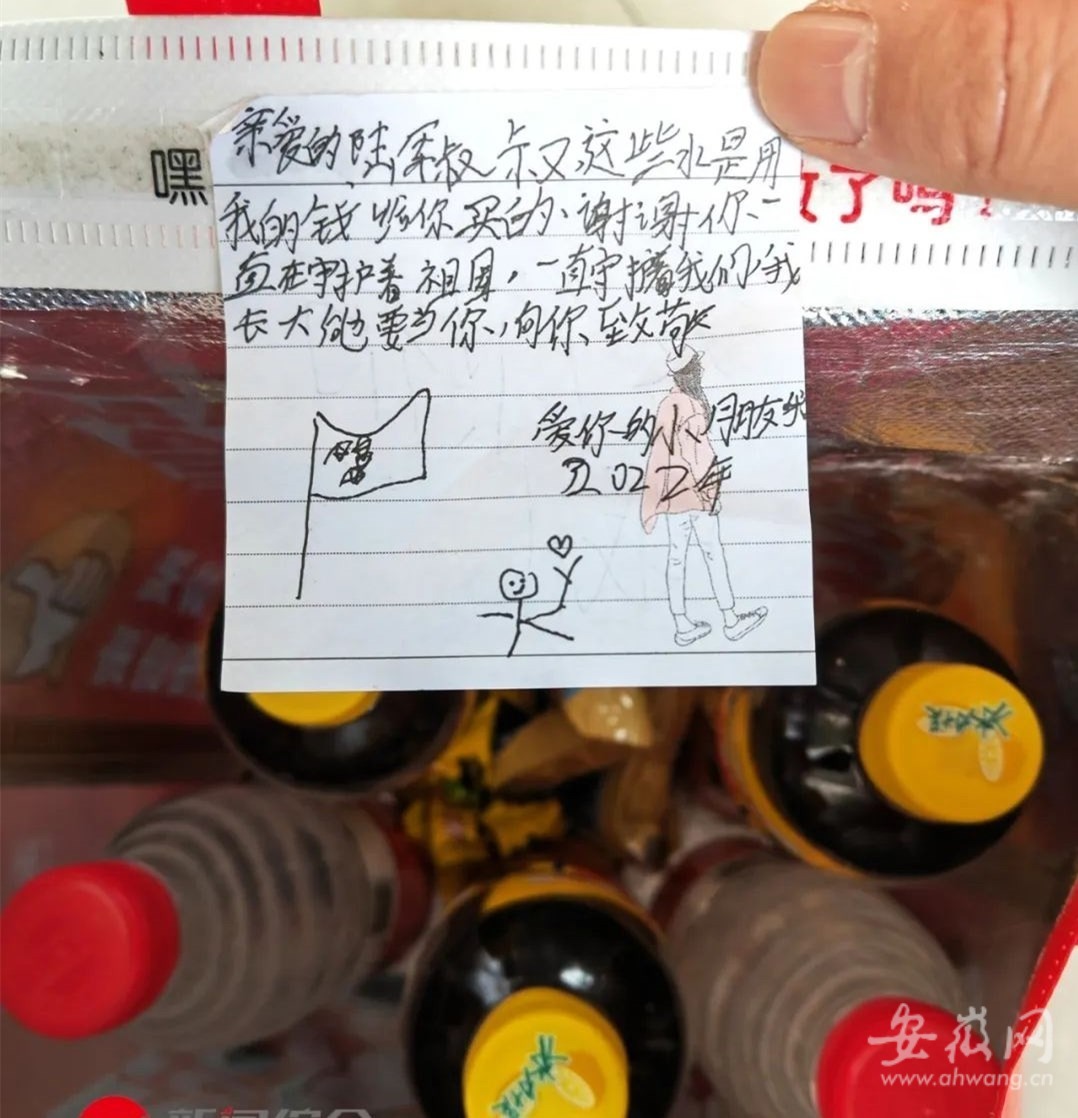 嘿
好了吗?
亲爱的陆军叔叔这些水是用
我的钱给你买的、谢谢你、一
直在守护着祖国，一直守护着我们，我
长大后也要当你，向你致敬
爱你的小朋友
2022年
安徽网
www.ahwang.cn
新闻综合